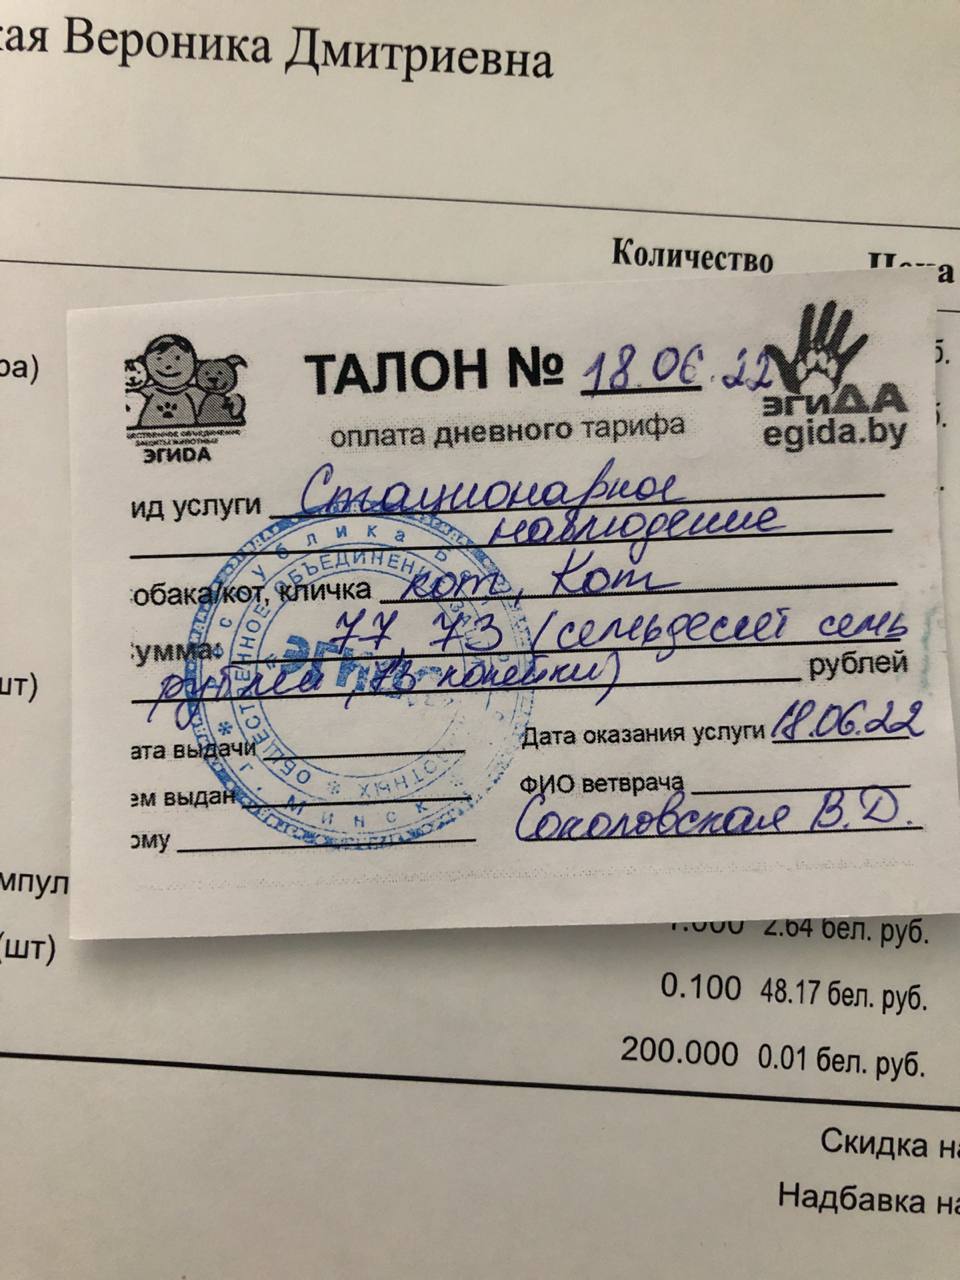 кая Вероника Дмитриевна
Количество Цена
ра)
б.
ТАЛОН № 18.06.22
оплата дневного тарифа
ЗАЩИТЫ ЖИВОТНЫХ
ЭГИДА
эгиДА
egida.by
ид услуги Стационарное
наблюдение
обака/кот, кличка кот, Кот
умма: 77,73 (семьдесят семь
рублей 73 копейки) рублей
шт)
ата выдачи
Дата оказания услуги 18.06.22
ем выдан
ФИО ветврача
ому
Соколовская В.Д.
ОБЩЕСТВЕННОЕ ОБЪЕДИНЕНИЕ
г. Минск
мпул
(шт)
1.000 2.64 бел. руб.
0.100 48.17 бел. руб.
200.000 0.01 бел. руб.
Скидка на
Надбавка на